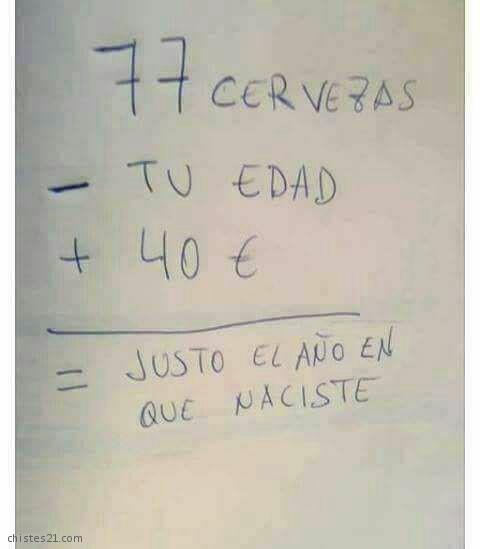 77 CERVEZAS
- TU EDAD
+ 40 €
= JUSTO EL AÑO EN
QUE NACISTE
chistes21.com